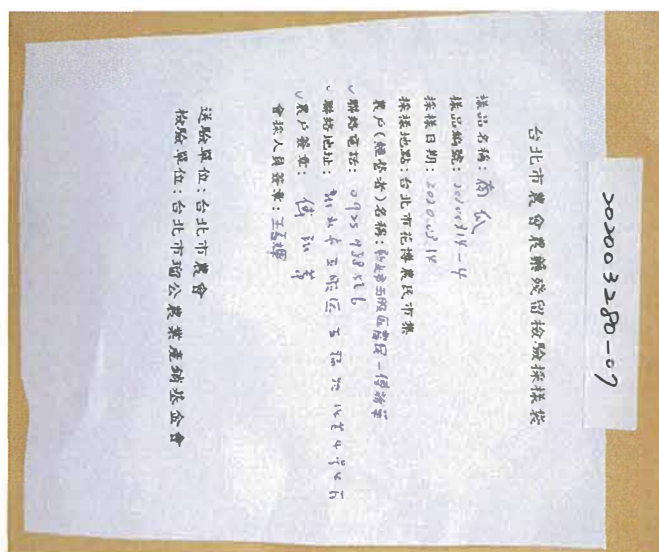 202003280-07
台北市農會農藥殘留檢驗採樣袋
樣品名稱：南瓜
樣品編號：20200314-4
採樣日期：2020.03.14
採樣地點：台北市花博農民市集
農戶(經營者)名稱：新北市五股區農民-傅
✓聯絡電話：0925938526
✓聯絡地址：新北市五股區五
✓農戶簽章：傅
會採人員簽章：王
送驗單位：台北市農會
檢驗單位：台北市瑠公農業產銷基金會